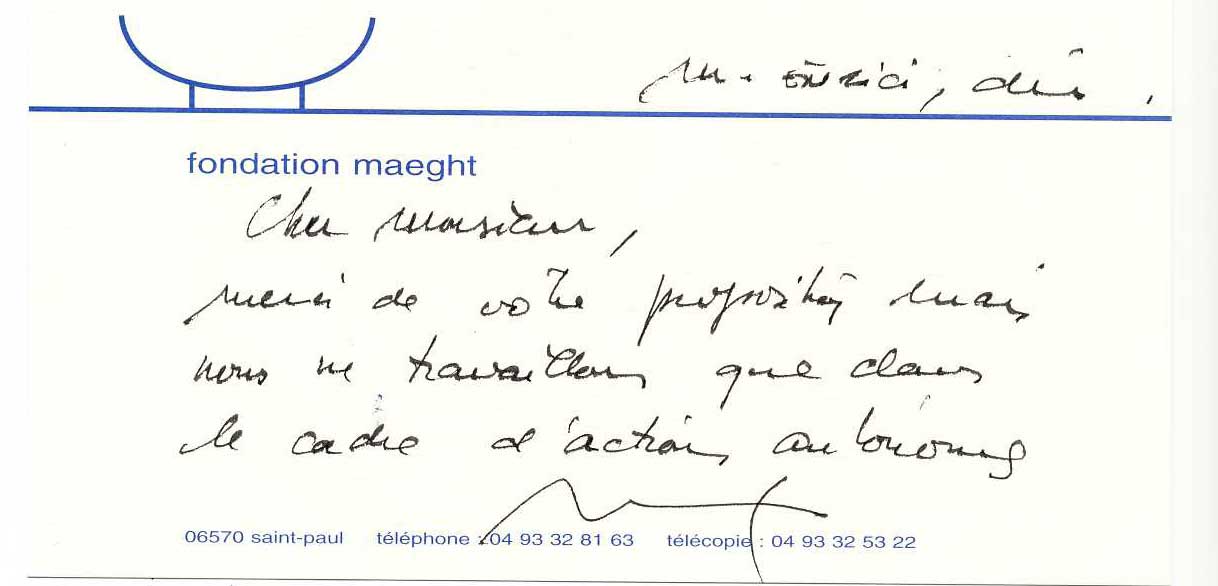 fondation maeght
Cher Monsieur,
merci de votre proposition mais
nous ne travaillons que dans
le cadre d'actions autonomes
06570 saint-paul téléphone : 04 93 32 81 63 télécopie : 04 93 32 53 22